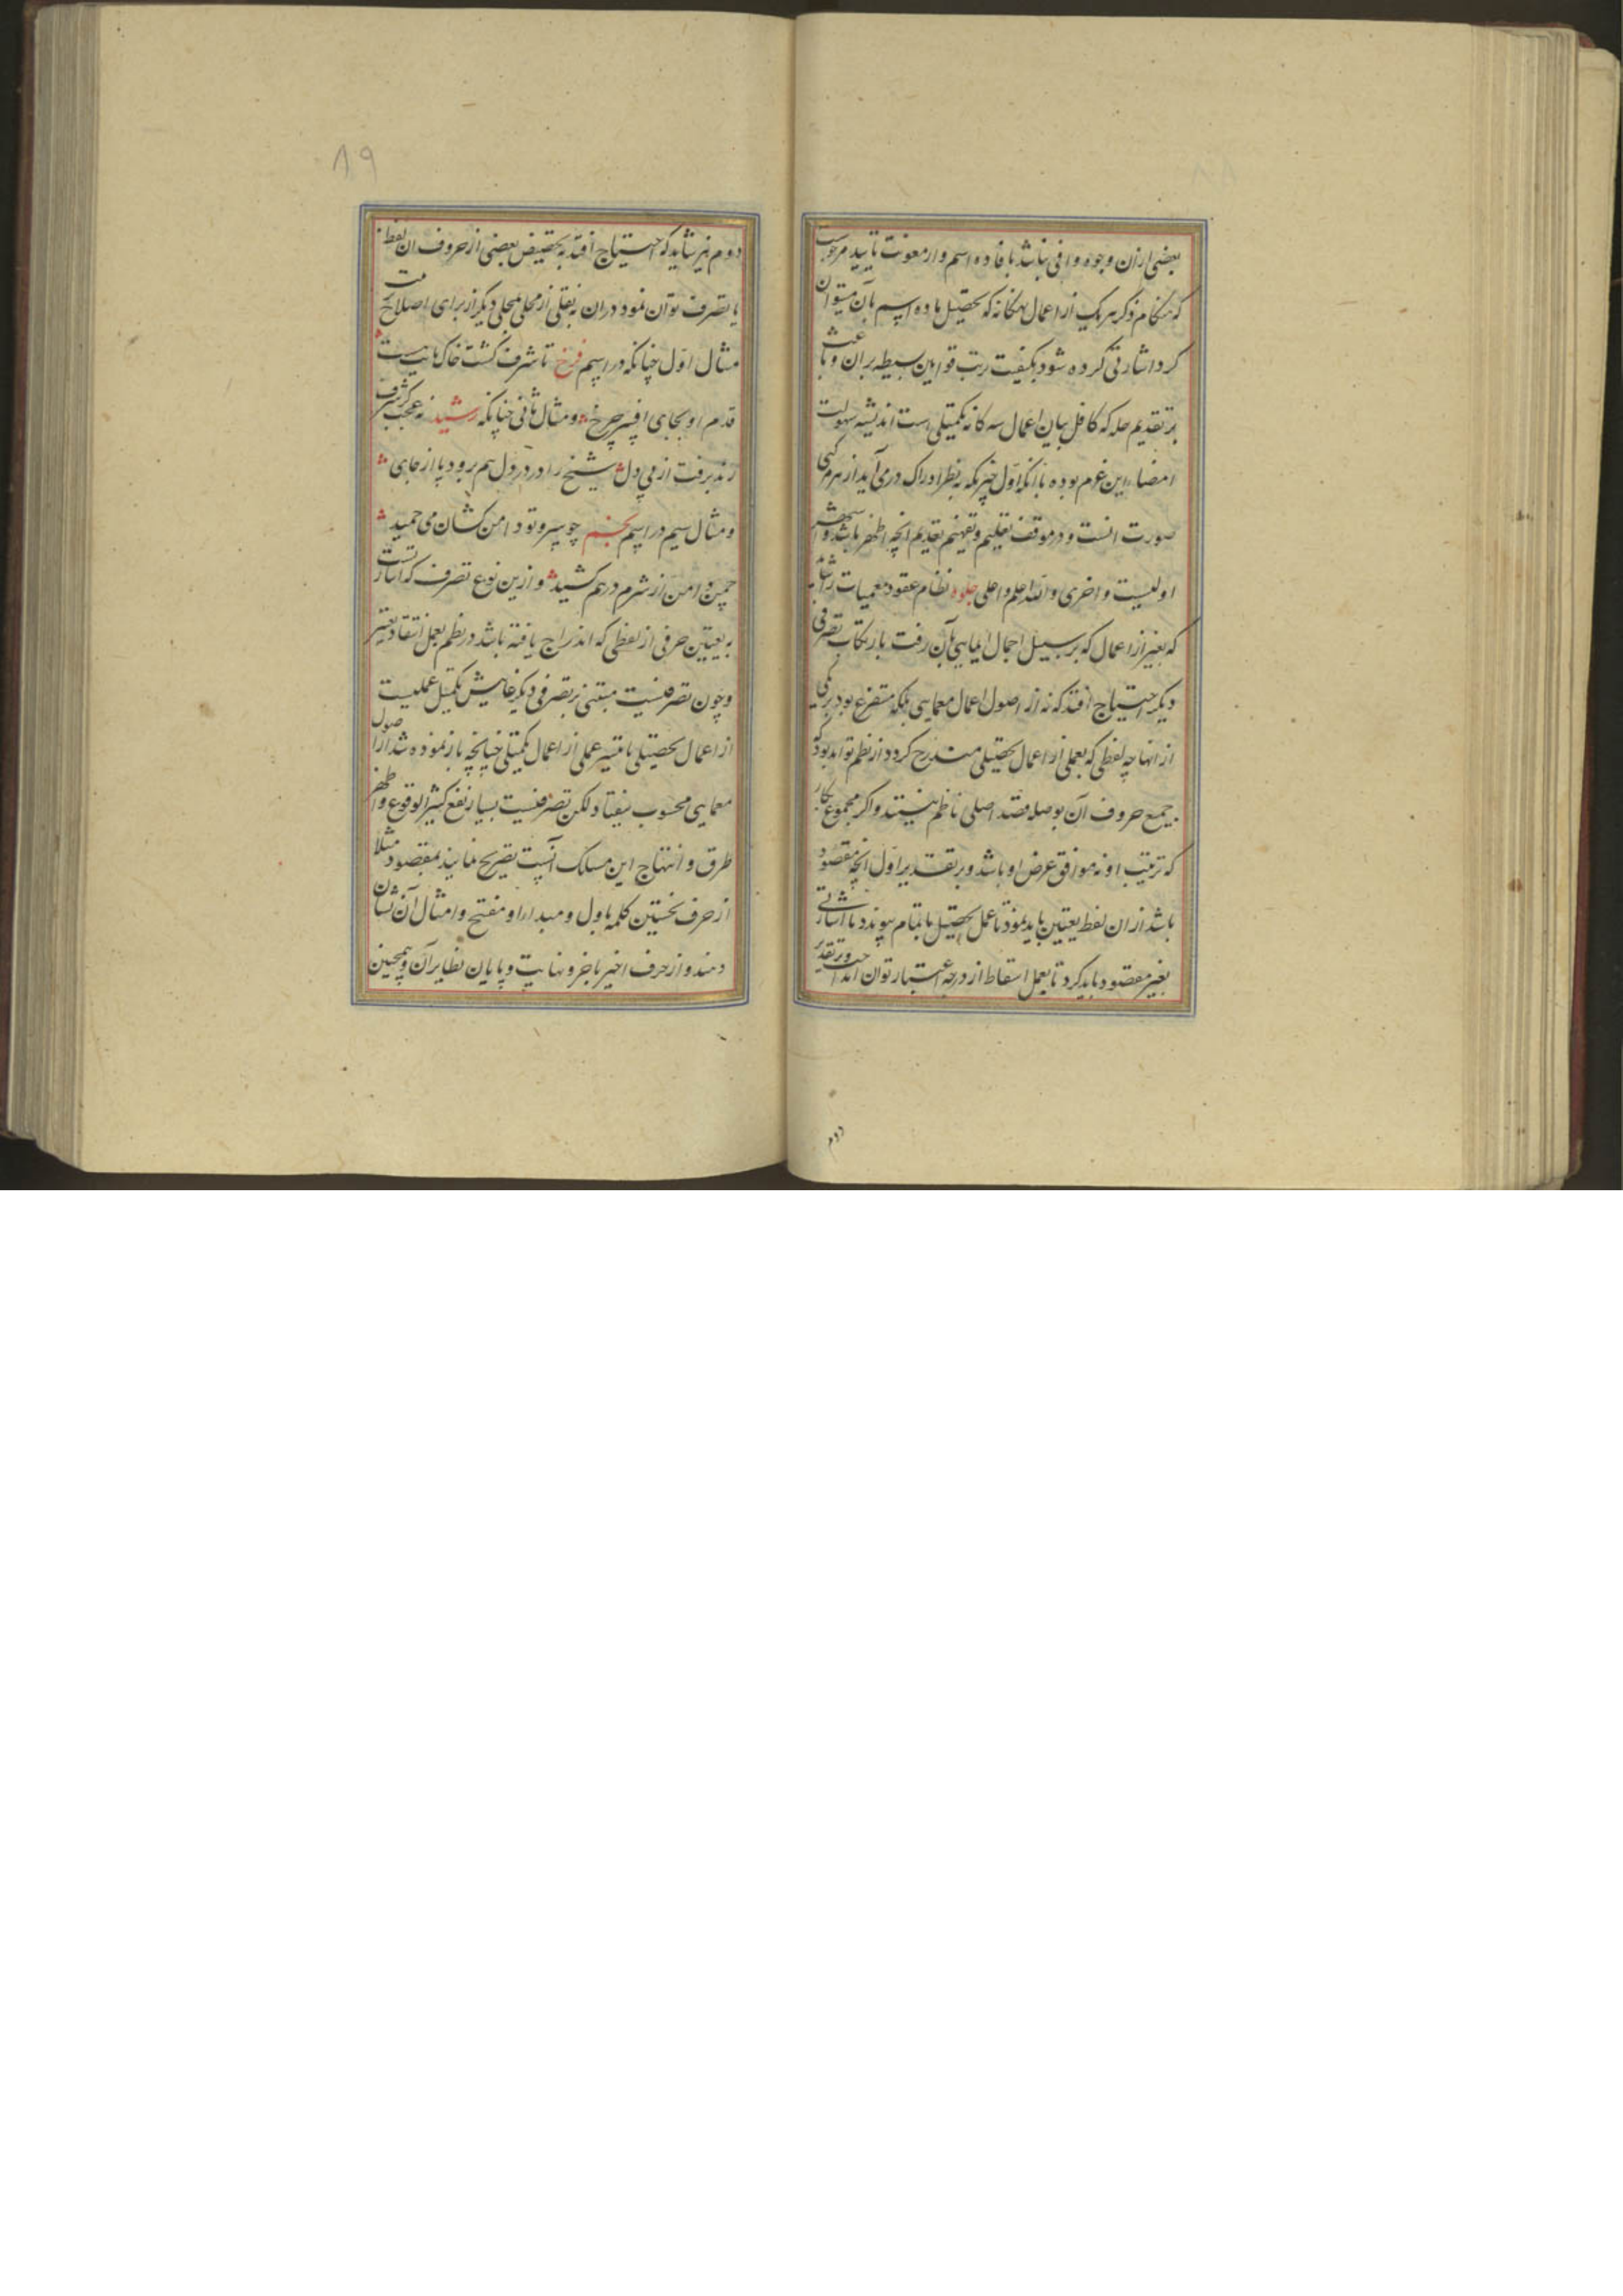 بعضی ازان وجوه وافی نباشد بافاده اسم و از معونت تایید مرجوست
که هنکام ذکر هر یک از اعمال نهکانه که تحصیل ماده اسم بآن میتوان
کرد اشارتی کرده شود بکیفیت ترتب قوانین بسیطه بران و باعث
بر تقدیم حله که کافل بیان اعمال سه کانه تکمیلی است اندیشه سهولت
امضاء این عزم بوده با انکه اول چیزیکه بنظر ادراک درمی آید از هر مرکبی
صورت انست و در موقف تعلیم و تفهیم تقدیم انچه اظهر باشد و اشهر
اولیست و احری والله اعلم و احلی جلوه نظام عقود معمیات را شاید
که بغیر از اعمال که بر سبیل اجمال ایمایی بآن رفت بارتکاب تصرفی
دیکر احتیاج افتد که نه از اصول اعمال معمایی بلکه متفرع بود بر یکی
از انها چه لفظی که بعملی از اعمال تحصیلی مندرج کردد از نظم تواند بود که
جمیع حروف آن بوصله قصد اصلی ناظم نیفتد و اکر مجموع بکار
که ترتیب او نه موافق غرض او باشد و بر تقدیر اول انچه مقصود
باشد ازان لفظ تعیین باید نمود تا عمل تحصیل باتمام پیوندد یا اشارتی
بغیر مقصود باید کرد تا بعمل اسقاط از درجه اعتبار توان انداخت و بر تقدیر
دوم
۸۹
دوم نیز شاید که احتیاج افتد به تخصیص بعضی از حروف ان لفظ
یا تصرف توان نمود دران به نقلی از محلی بمحلی دیکر از برای اصلاح
مثال اول چنانکه در اسم فرخ تا شرف کشت خاک پایت هست
قدم او بجای افسر چرخ و مثال ثانی چنانکه رشید نه عجب کر شرف
رند برفت از پی دل شیخ را درد دل هم برود پا از جای
و مثال سیم در اسم نجم چو سرو تو دامن کشان می چمید
چمن دامن از شرم درهم کشید و ازین نوع تصرف که اشارتست
به تعیین حرفی از لفظی که اندراج یافته باشد در نظم بعمل انتقاد تعبیر
و چون تصرفیست مبتنی بر تصرفی دیکر غایتش تکمیل عملیست
از اعمال تحصیلی یا تتمیم عملی از اعمال تکمیلی چنانچه باز نموده شد از اصول
معمایی محسوب نیفتاد لکن تصرفیست بسیار نفع کثیر الوقوع و اظهر
طرق و انتهاج این مسلک آنست تصریح نمایند بمقصود مثلا
از حرف نخستین کلمه باول و مبدا و مفتح و امثال آن نشان
دهند و از حرف اخیر باخر و نهایت و پایان نظایر آن و همچنین